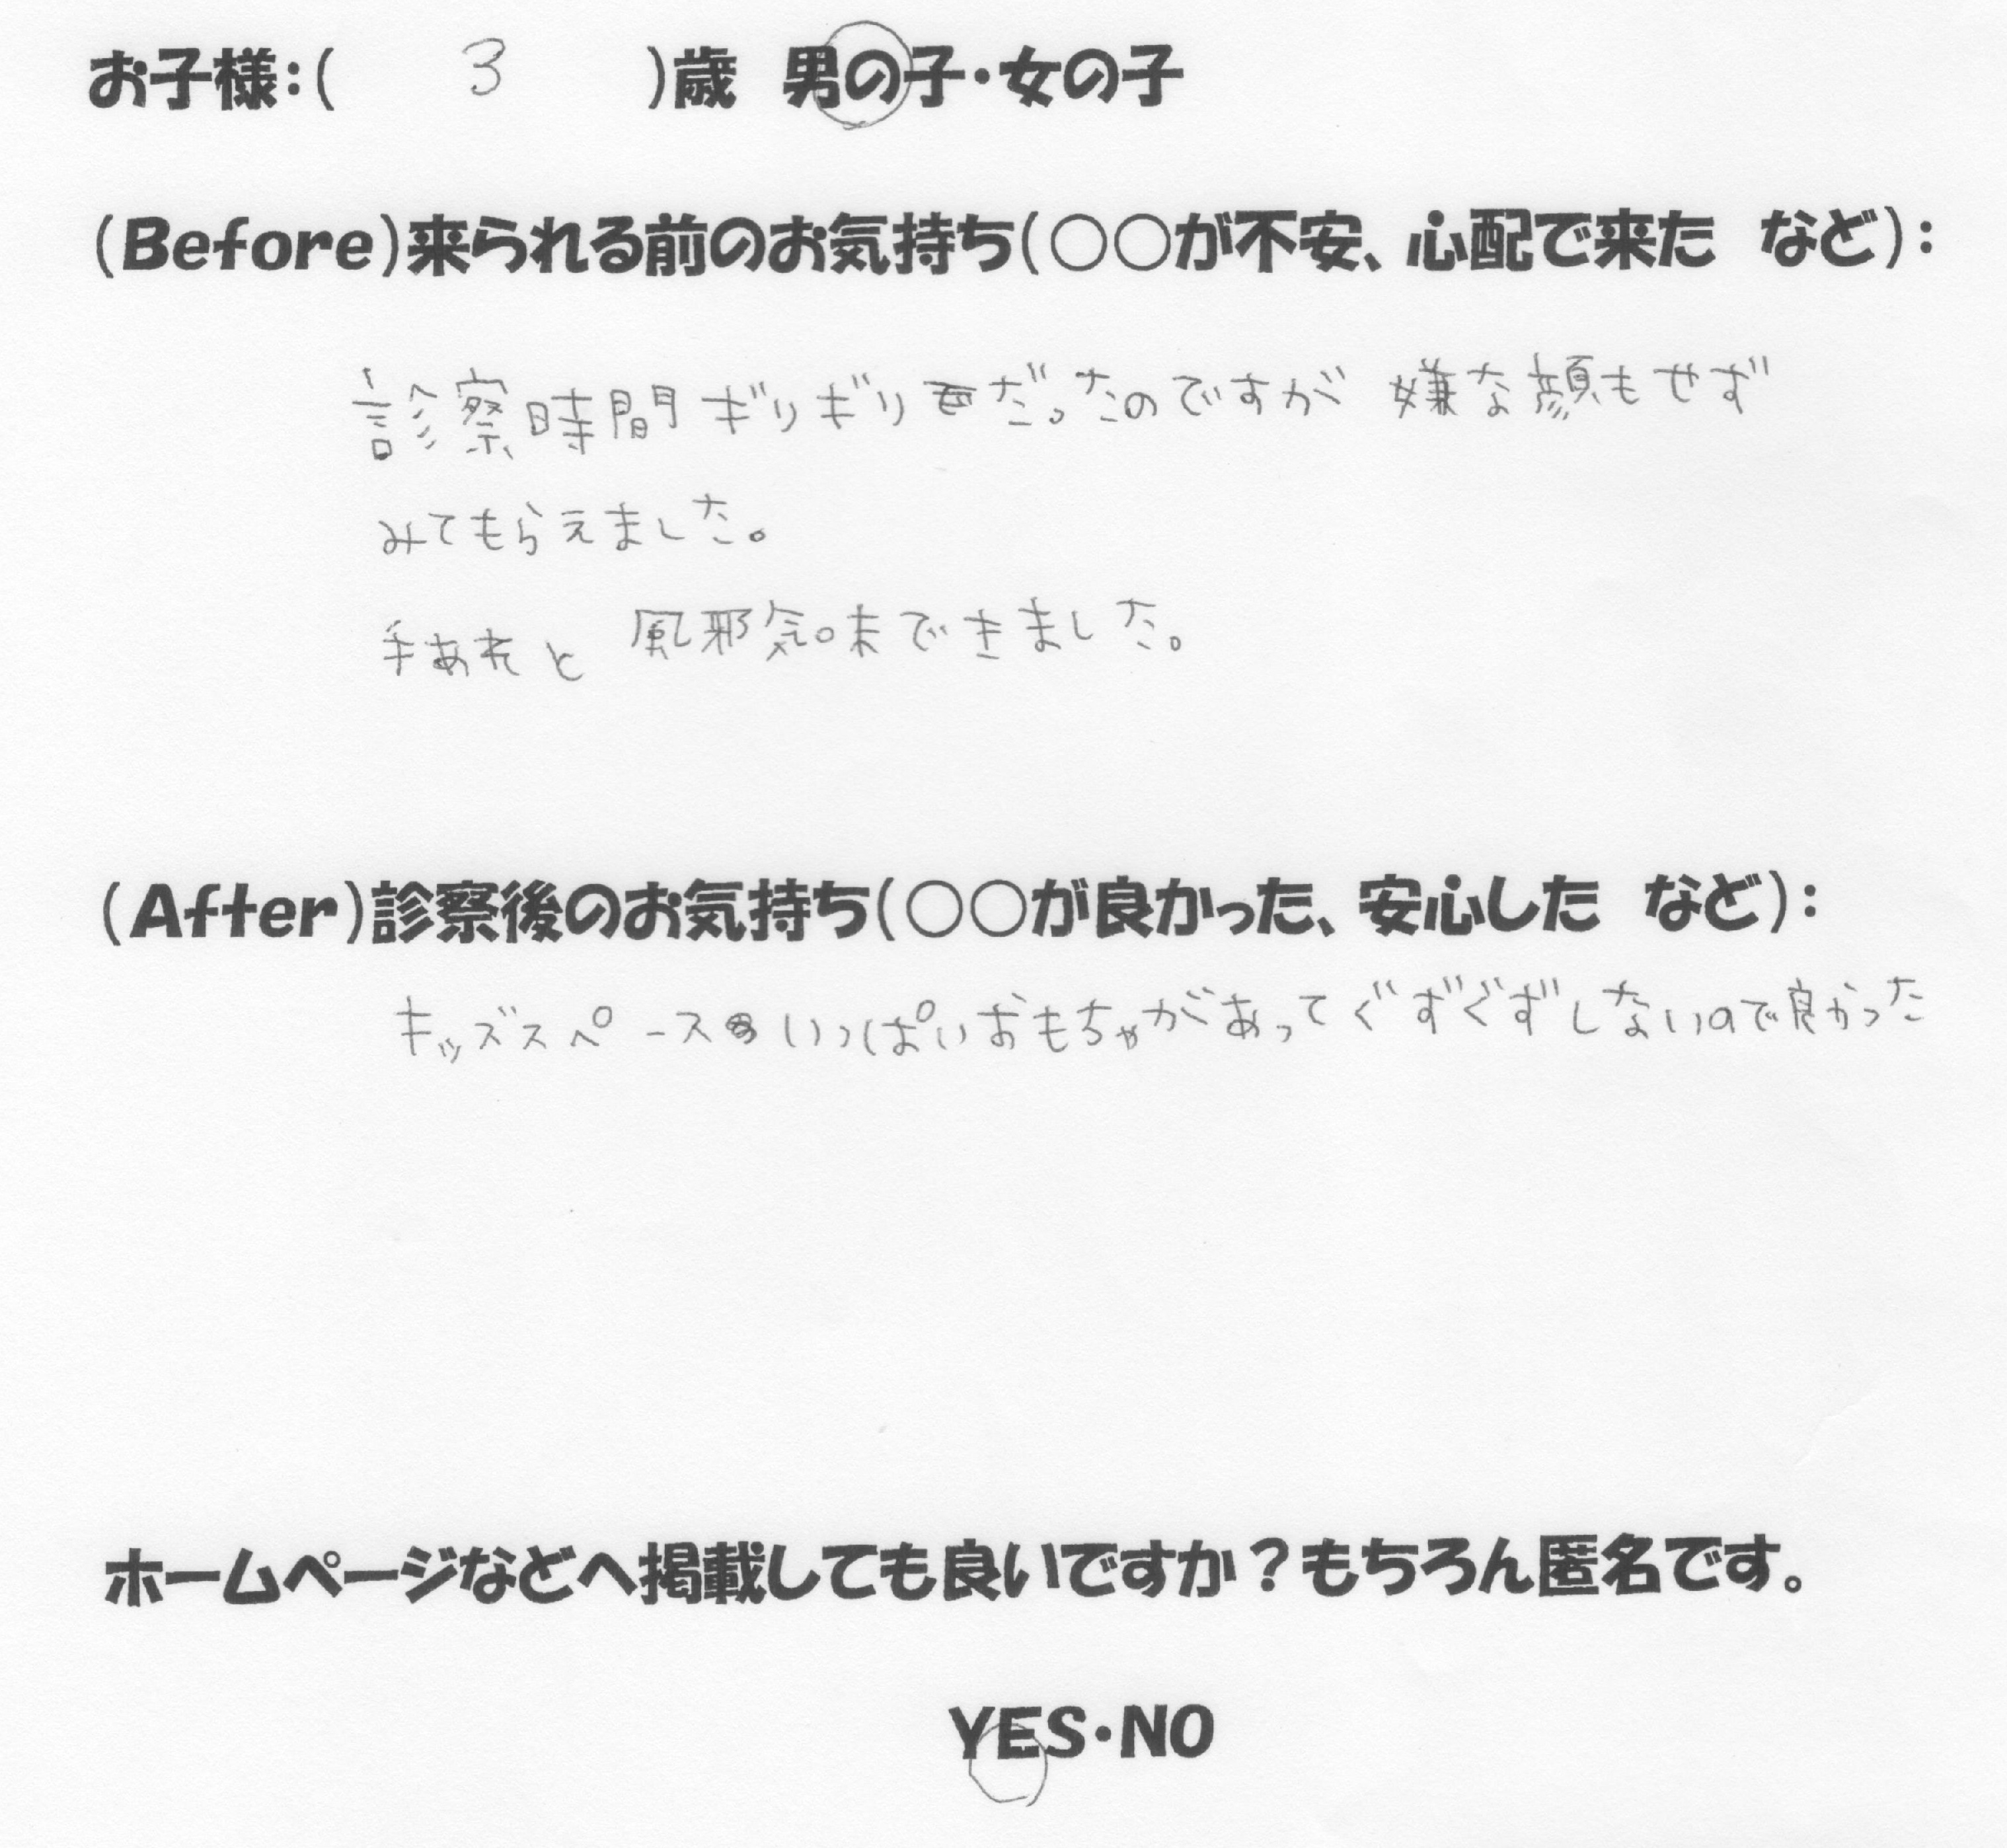 お子様：( 3 )歳 男の子・女の子
(Before)来られる前のお気持ち(○○が不安、心配で来た など)：
診察時間ギリギリだったのですが 嫌な顔もせず
みてもらえました。
手あれと 風邪気味できました。
(After)診察後のお気持ち(○○が良かった、安心した など)：
キッズスペースいっぱいおもちゃがあってぐずぐずしないので良かった
ホームページなどへ掲載しても良いですか？もちろん匿名です。
YES・NO